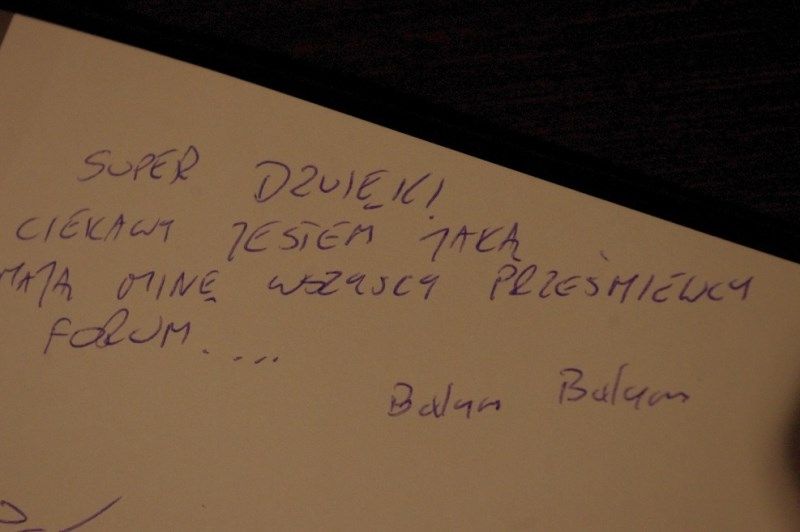 SUPER DZWIĘKI
CIEKAWY JESTEM JAKĄ
MAJĄ MINĘ WSZYSCY PRZEŚMIEWCY
FORUM....